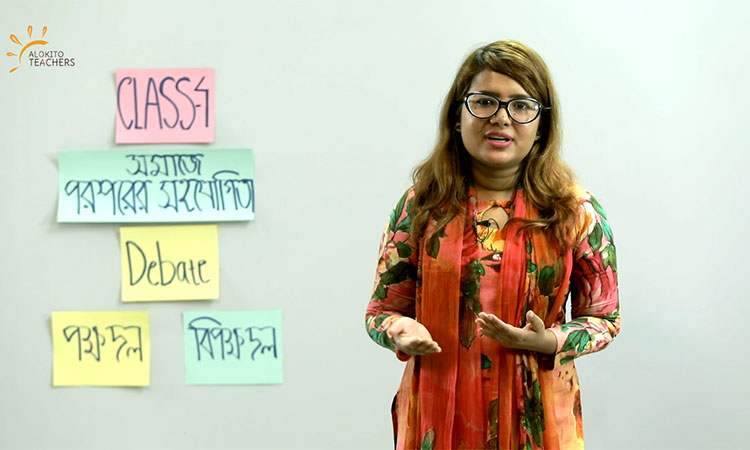 ALOKITO
TEACHERS
CLASS-7
সমাজে
পরস্পরের সহযোগিতা
Debate
পক্ষ দল
বিপক্ষ দল